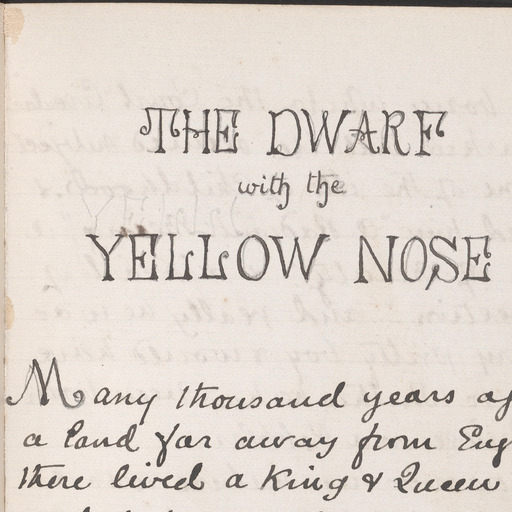 THE DWARF
with the
YELLOW NOSE
Many thousand years ag
a land far away from Eng
there lived a King & Queen